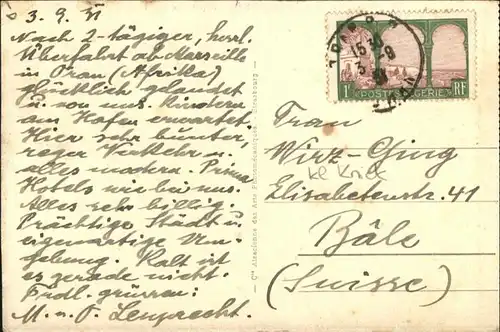 3. 9. 31
Nach 2-tägiger, herrl.
Überfahrt ab Marseille
in Oran (Afrika)
glücklich gelandet
u. von uns. Kindern
am Hafen erwartet.
Hier sehr bunter,
reger Verkehr u.
alles modern. Prima
Hotels wie bei uns.
Alles sehr billig.
Prächtige Stadt u.
eigenartige Um-
gebung. Kalt ist
es gerade nicht.
Frdl. grüssen:
M. u. F.
Cie Alsacienne des Arts Photomécaniques, Strasbourg
ORAN R.P.
15 30
3 -9
31
ORAN
1F POSTES ALGERIE RF
Frau
Wirz-Ging
Elisabetenstr. 41
Bâle
(Suisse)